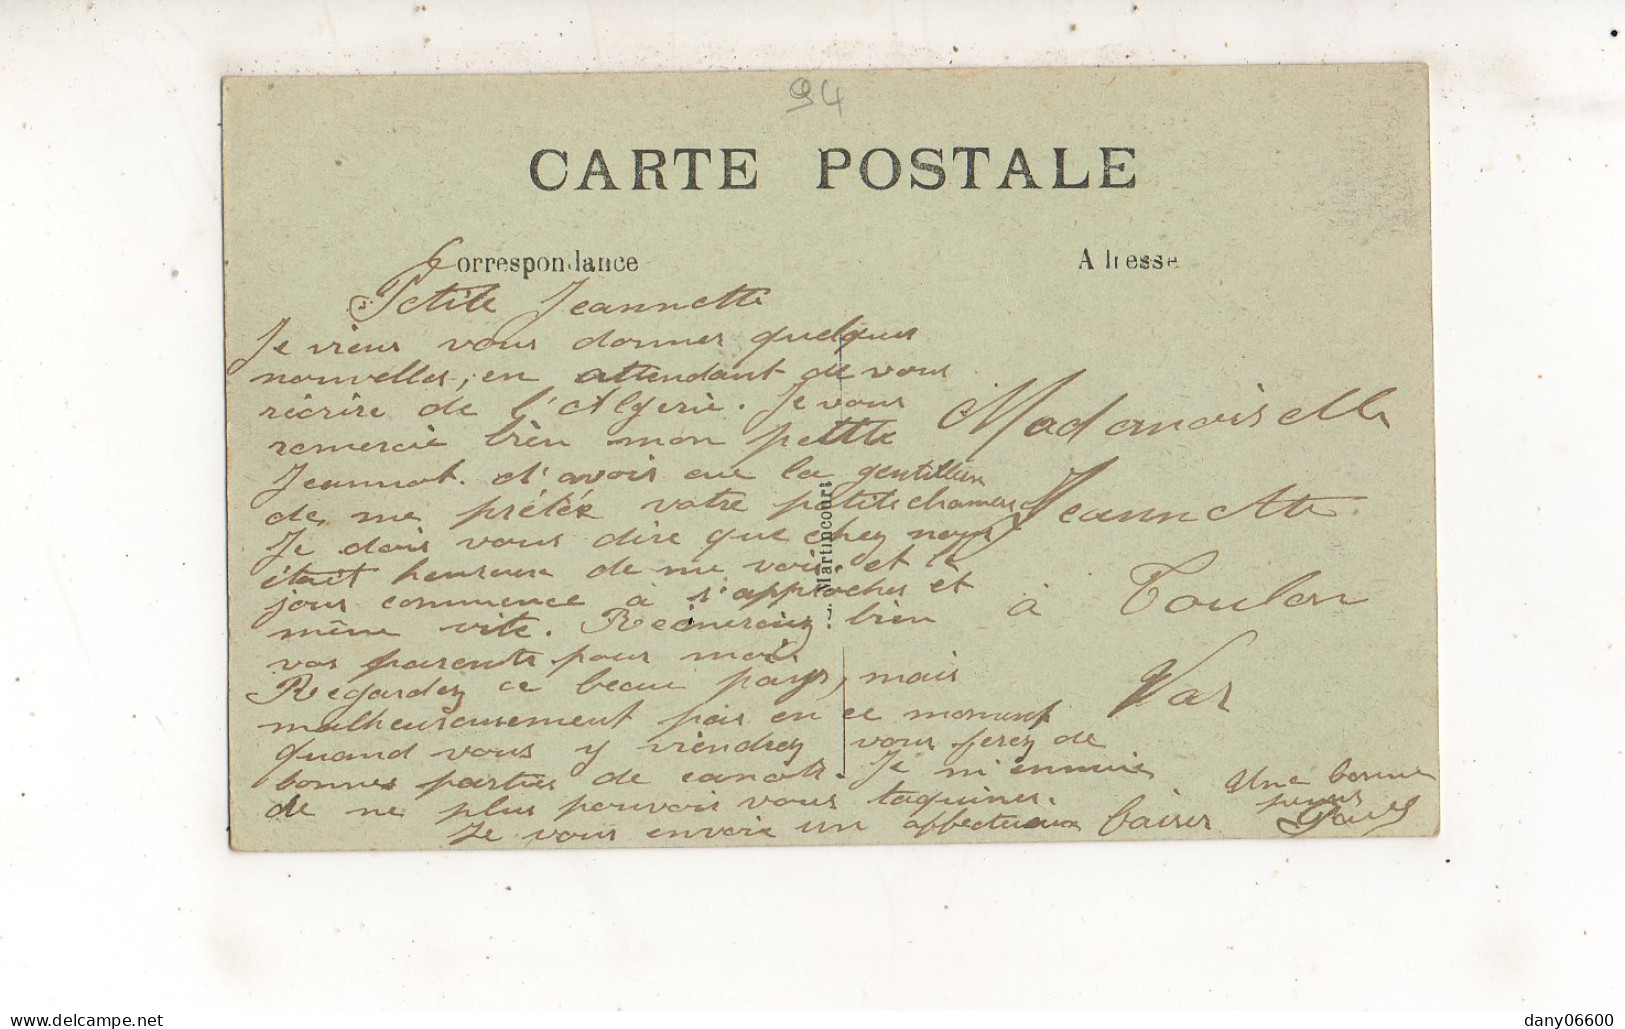 94
CARTE POSTALE
Correspondance
Adresse
Petite Jeannette
Je viens vous donner quelques
nouvelles, en attendant de vous
récrire de l'Algerie. Je vous
remercie bien mon petite
Jeannot. d'avoir eu la gentillesse
de me prétée votre petite chambre
Je dois vous dire que chez nous
était heureux de me voir. et le
jour commence à s'approcher et
même vite. Remerciez bien
vos parents pour moi
Regardez ce beau pays, mais
malheureusement pas en ce moment
quand vous y viendrez vous ferez de
bonnes parties de canots. Je m'ennuie
de ne plus pouvoir vous taquiner.
Je vous envoie un affectueux baiser
Mademoiselle
Jeannette
à Toulon
Var
Une bonne
Martincourt
dany06600